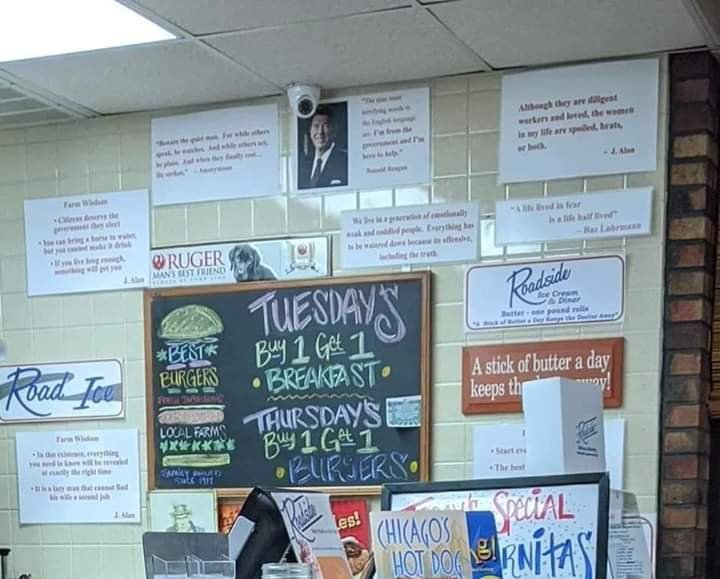 "Beware the quiet man. For while others
speak, he watches. And while others act,
he plans. And when they finally rest...
He strikes." - Anonymous
"The nine most
terrifying words in
the English language
are: I'm from the
government and I'm
here to help."
Ronald Reagan
Although they are diligent
workers and loved, the women
in my life are spoiled, brats,
or both.
- J. Alan
Farm Wisdom
• Citizens deserve the
government they elect
• You can bring a horse to water,
but you cannot make it drink
• If you live long enough,
something will get you
J. Alan
We live in a generation of emotionally
weak and coddled people. Everything has
to be watered down because its offensive,
including the truth.
"A life lived in fear
is a life half lived"
- Baz Luhrmann
RUGER
MAN'S BEST FRIEND
Roadside
Ice Cream
& Diner
Butter - one pound rolls
"A Stick of Butter a Day Keeps the Doctor Away"
TUESDAY'S
Buy 1 Get 1
• BREAKFAST •
THURSDAY'S
Buy 1 Get 1
• BURGERS •
*BEST*
BURGERS
LOCAL FARMS
FAMILY OWNED
SINCE 1977
A stick of butter a day
keeps th
way!
Road Ice
Farm Wisdom
• In this existence, everything
you need to know will be revealed
at exactly the right time
• It is a lazy man that cannot find
his wife a second job
J. Alan
• Start
• The best
es!
CHICAGO'S
HOT DOG
Special
RNITAS